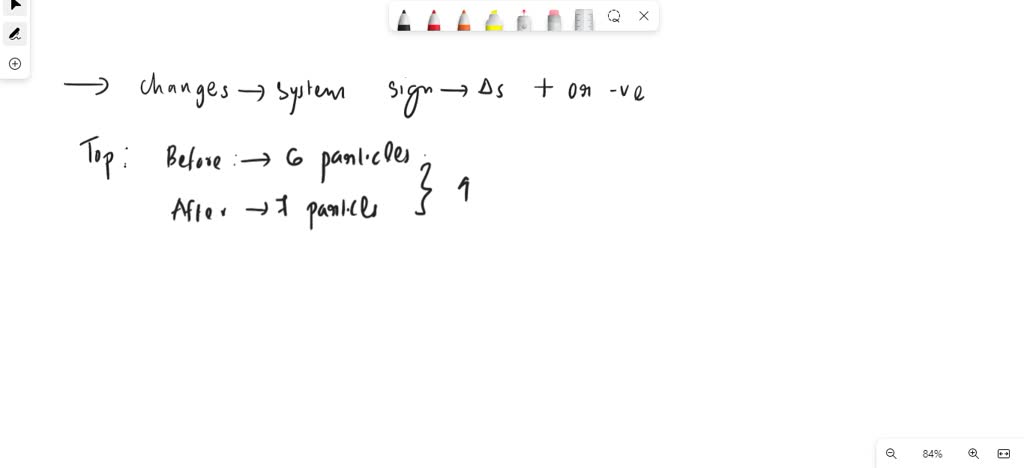 → changes → system sign → Δs + or -ve
Top: Before :→ 6 particles
After → 7 particls } ↑
84%